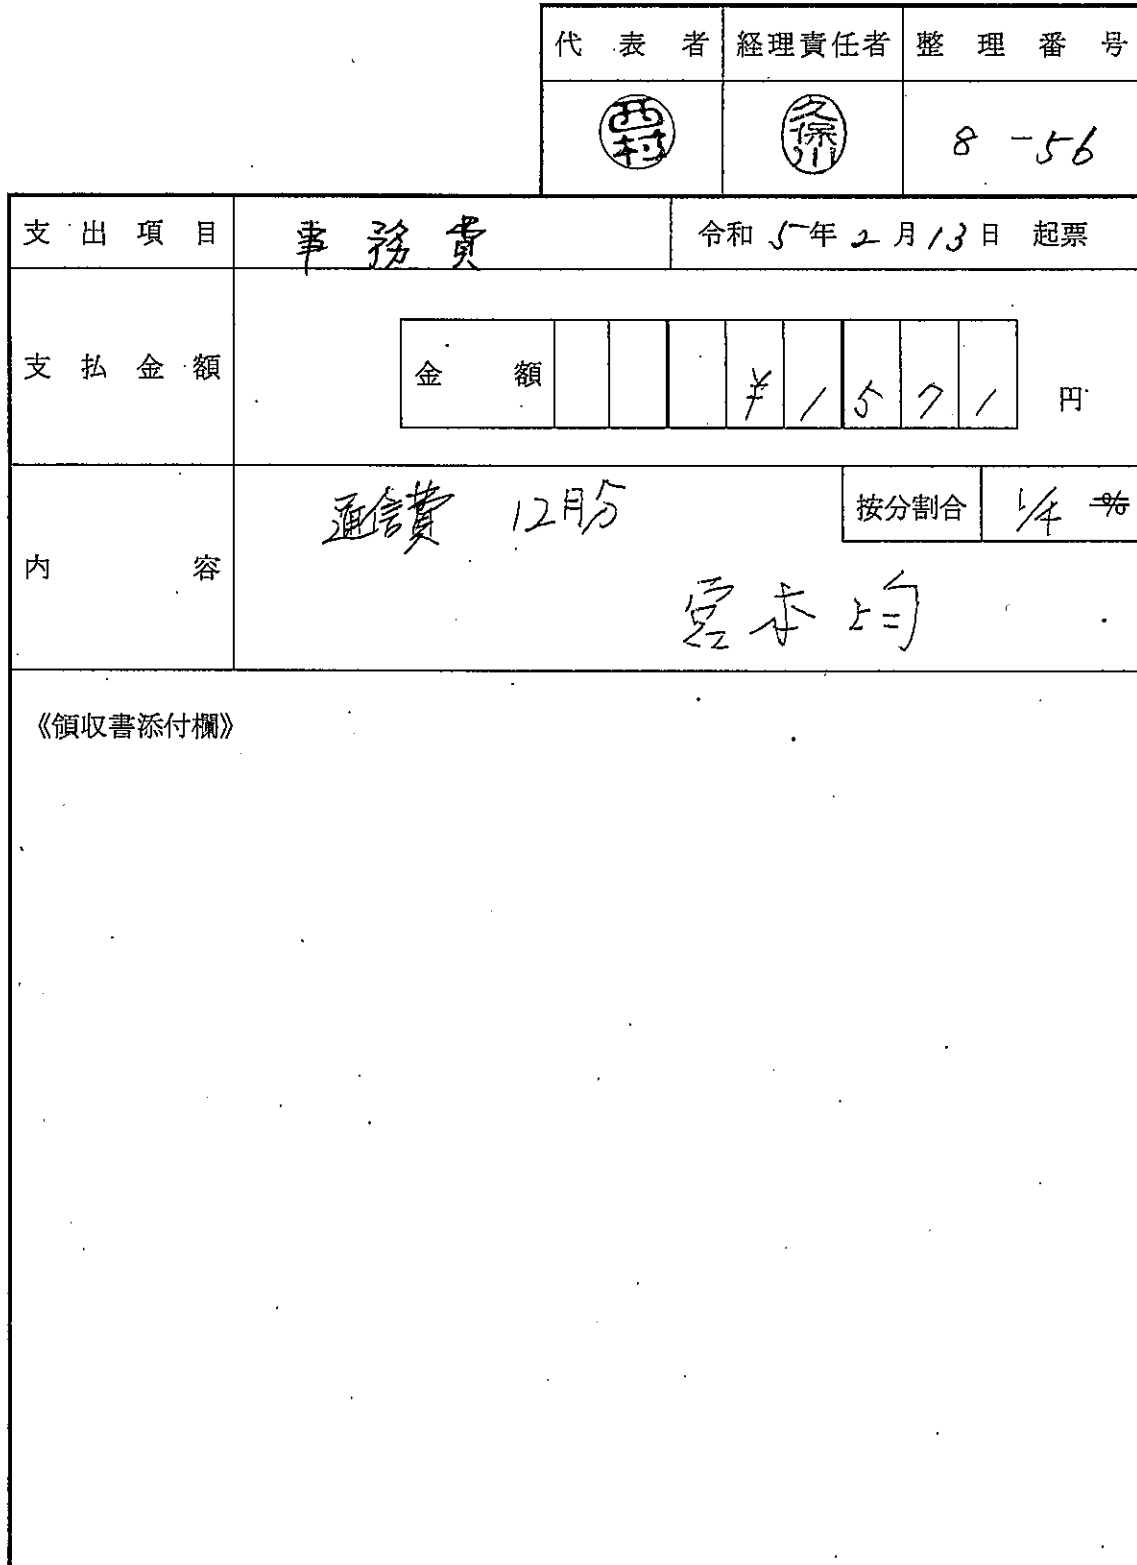 代表者 経理責任者 整理番号
西村 久保川 8-56
支出項目 事務費 令和5年2月13日 起票
支払金額 金額 ¥1571 円
内容 通信費 12月分 按分割合 1/4 %
宮本均
《領収書添付欄》